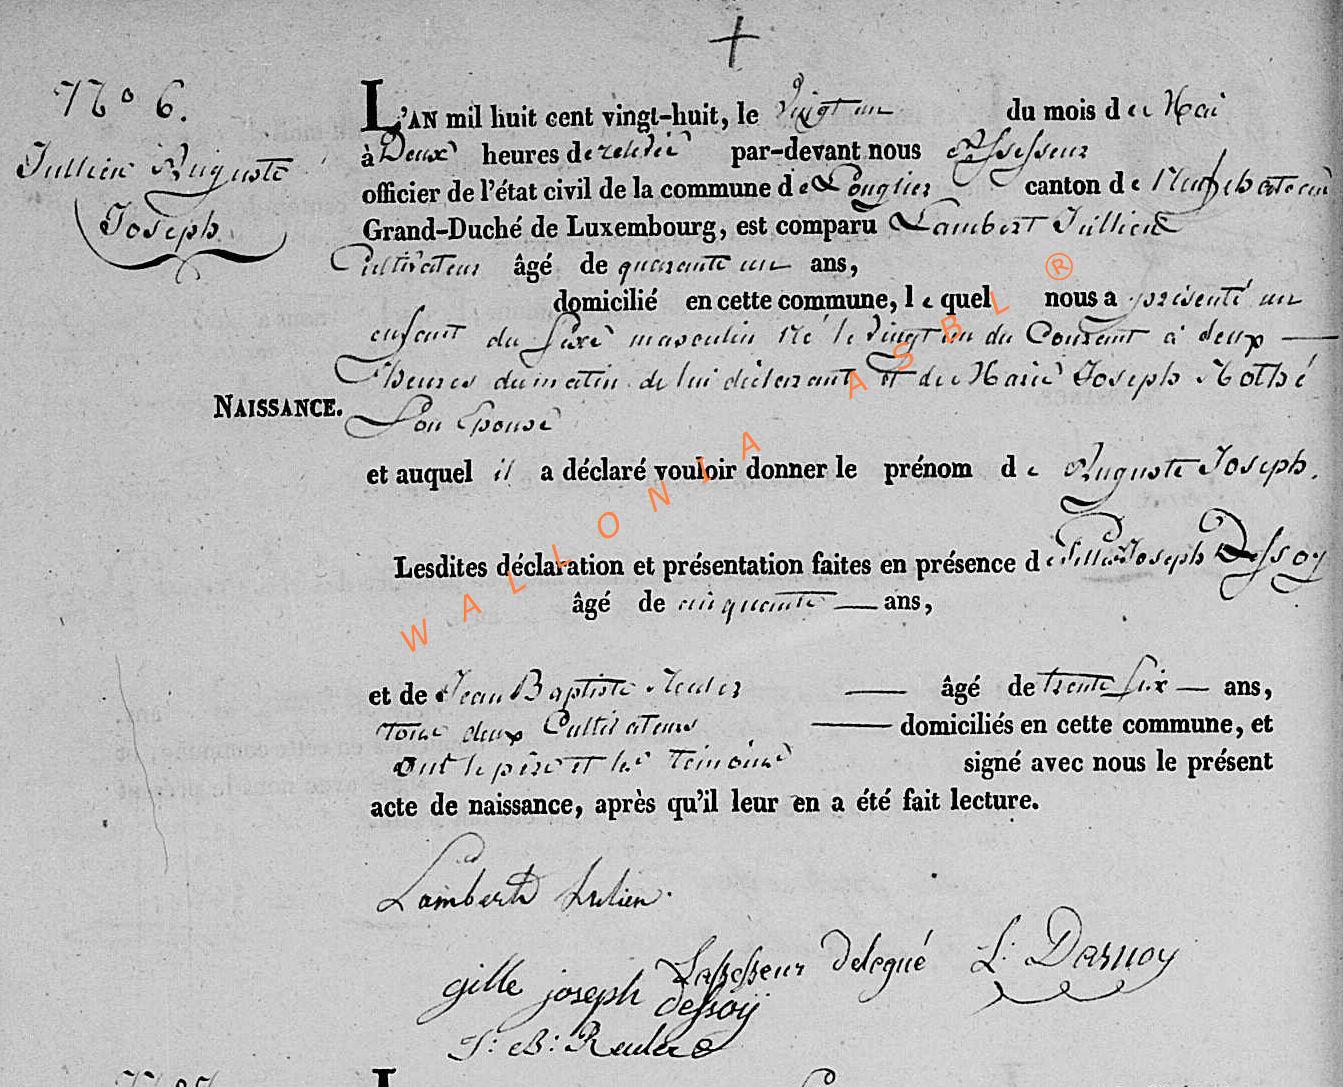 N° 6.
Jullien Auguste
Joseph
L'AN mil huit cent vingt-huit, le Vingt un du mois de Mai
à Deux heures de relevée par-devant nous assesseur
officier de l'état civil de la commune de Longlier canton de Neufchateau
Grand-Duché de Luxembourg, est comparu Lambert Jullien
Cultivateur âgé de quarante un ans,
domicilié en cette commune, lequel nous a présenté un
enfant du Sexe masculin Né le Vingt un du Courant à deux
heures du matin de lui déclarant et de Marie Joseph Mothé
NAISSANCE.
Son Epouse
et auquel il a déclaré vouloir donner le prénom de Auguste Joseph.
Lesdites déclaration et présentation faites en présence de Gille Joseph Dessoy
âgé de cinquante ans,
et de Jean Baptiste Reuler âgé de trente Six ans,
Tous deux Cultivateurs domiciliés en cette commune, et
Ont le père et les Témoins signé avec nous le présent
acte de naissance, après qu'il leur en a été fait lecture.
Lambert Julien.
Lassesseur Delegué L. Darnoy
gille joseph dessoÿ
J: B: Reuler
L
WALLONIA ASBL ®